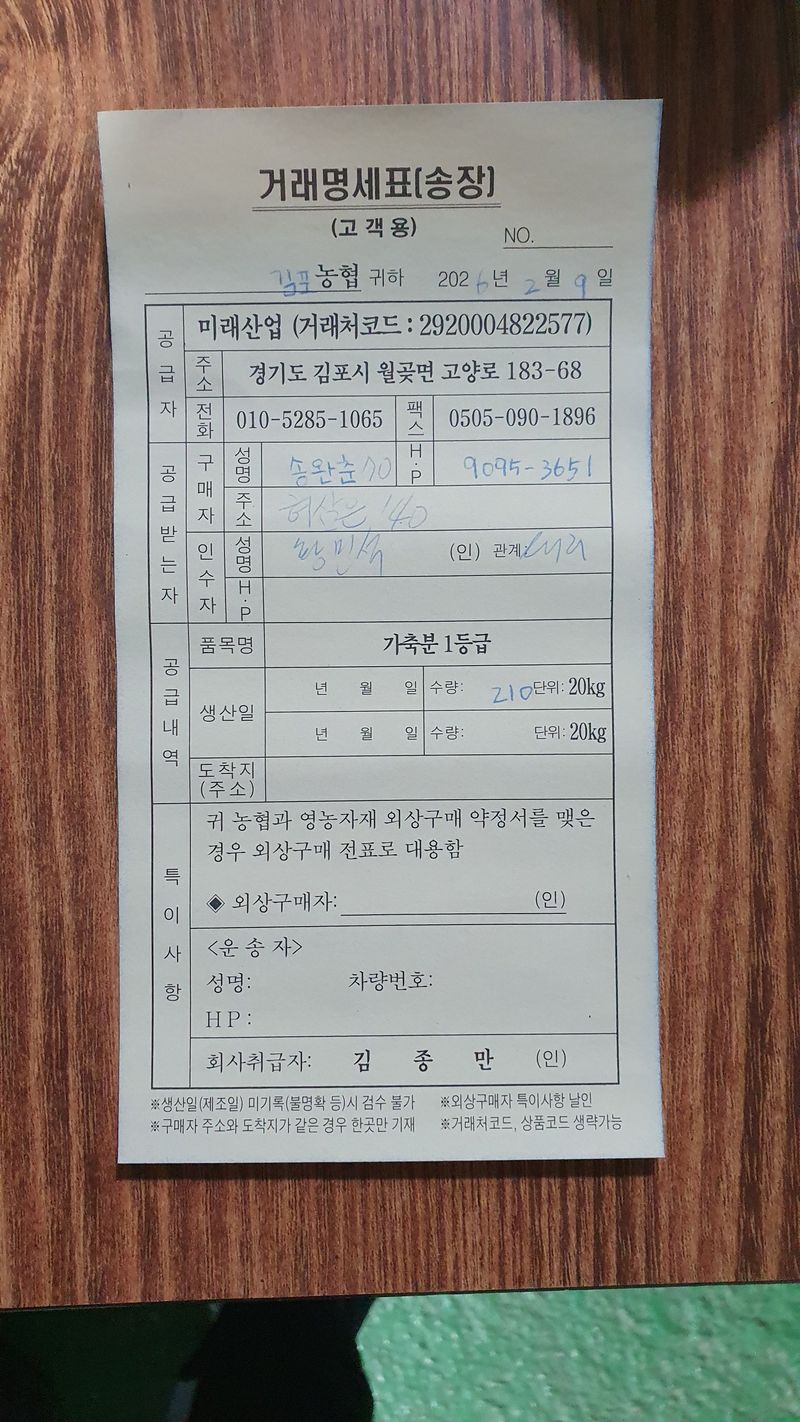 거래명세표(송장)
(고 객 용)
NO.
김포농협 귀하 2026년 2월 9일
공급자
미래산업 (거래처코드 : 2920004822577)
주소 경기도 김포시 월곶면 고양로 183-68
전화 010-5285-1065 팩스 0505-090-1896
공급받는자
구매자 성명 송완춘 70 H·P 9095-3651
주소 '40
인수자 성명 황민석 (인) 관계:
H·P
공급내역
품목명 가축분 1등급
생산일 년 월 일 수량: 210 단위: 20kg
년 월 일 수량: 단위: 20kg
도착지 (주소)
특이사항
귀 농협과 영농자재 외상구매 약정서를 맺은
경우 외상구매 전표로 대용함
◈ 외상구매자: (인)
<운 송 자>
성명: 차량번호:
HP :
회사취급자: 김 종 만 (인)
※생산일(제조일) 미기록(불명확 등)시 검수 불가 ※외상구매자 특이사항 날인
※구매자 주소와 도착지가 같은 경우 한곳만 기재 ※거래처코드, 상품코드 생략가능